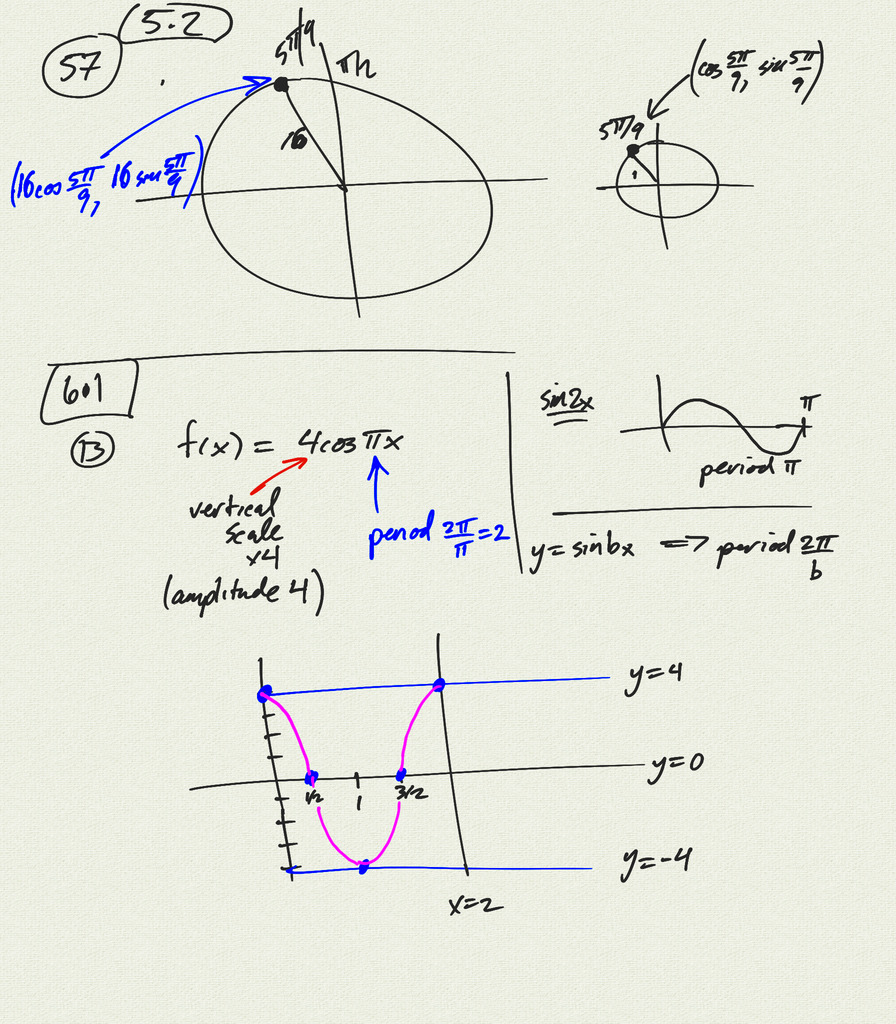 5.2
57
5π/9
π/2
16
(16cos 5π/9, 16 sin 5π/9)
(cos 5π/9, sin 5π/9)
5π/9
1
6.1
13
f(x) = 4cos πx
vertical
scale
x4
(amplitude 4)
period 2π/π = 2
sin2x
π
period π
y = sinbx => period 2π/b
y=4
y=0
1/2
1
3/2
y=-4
x=2